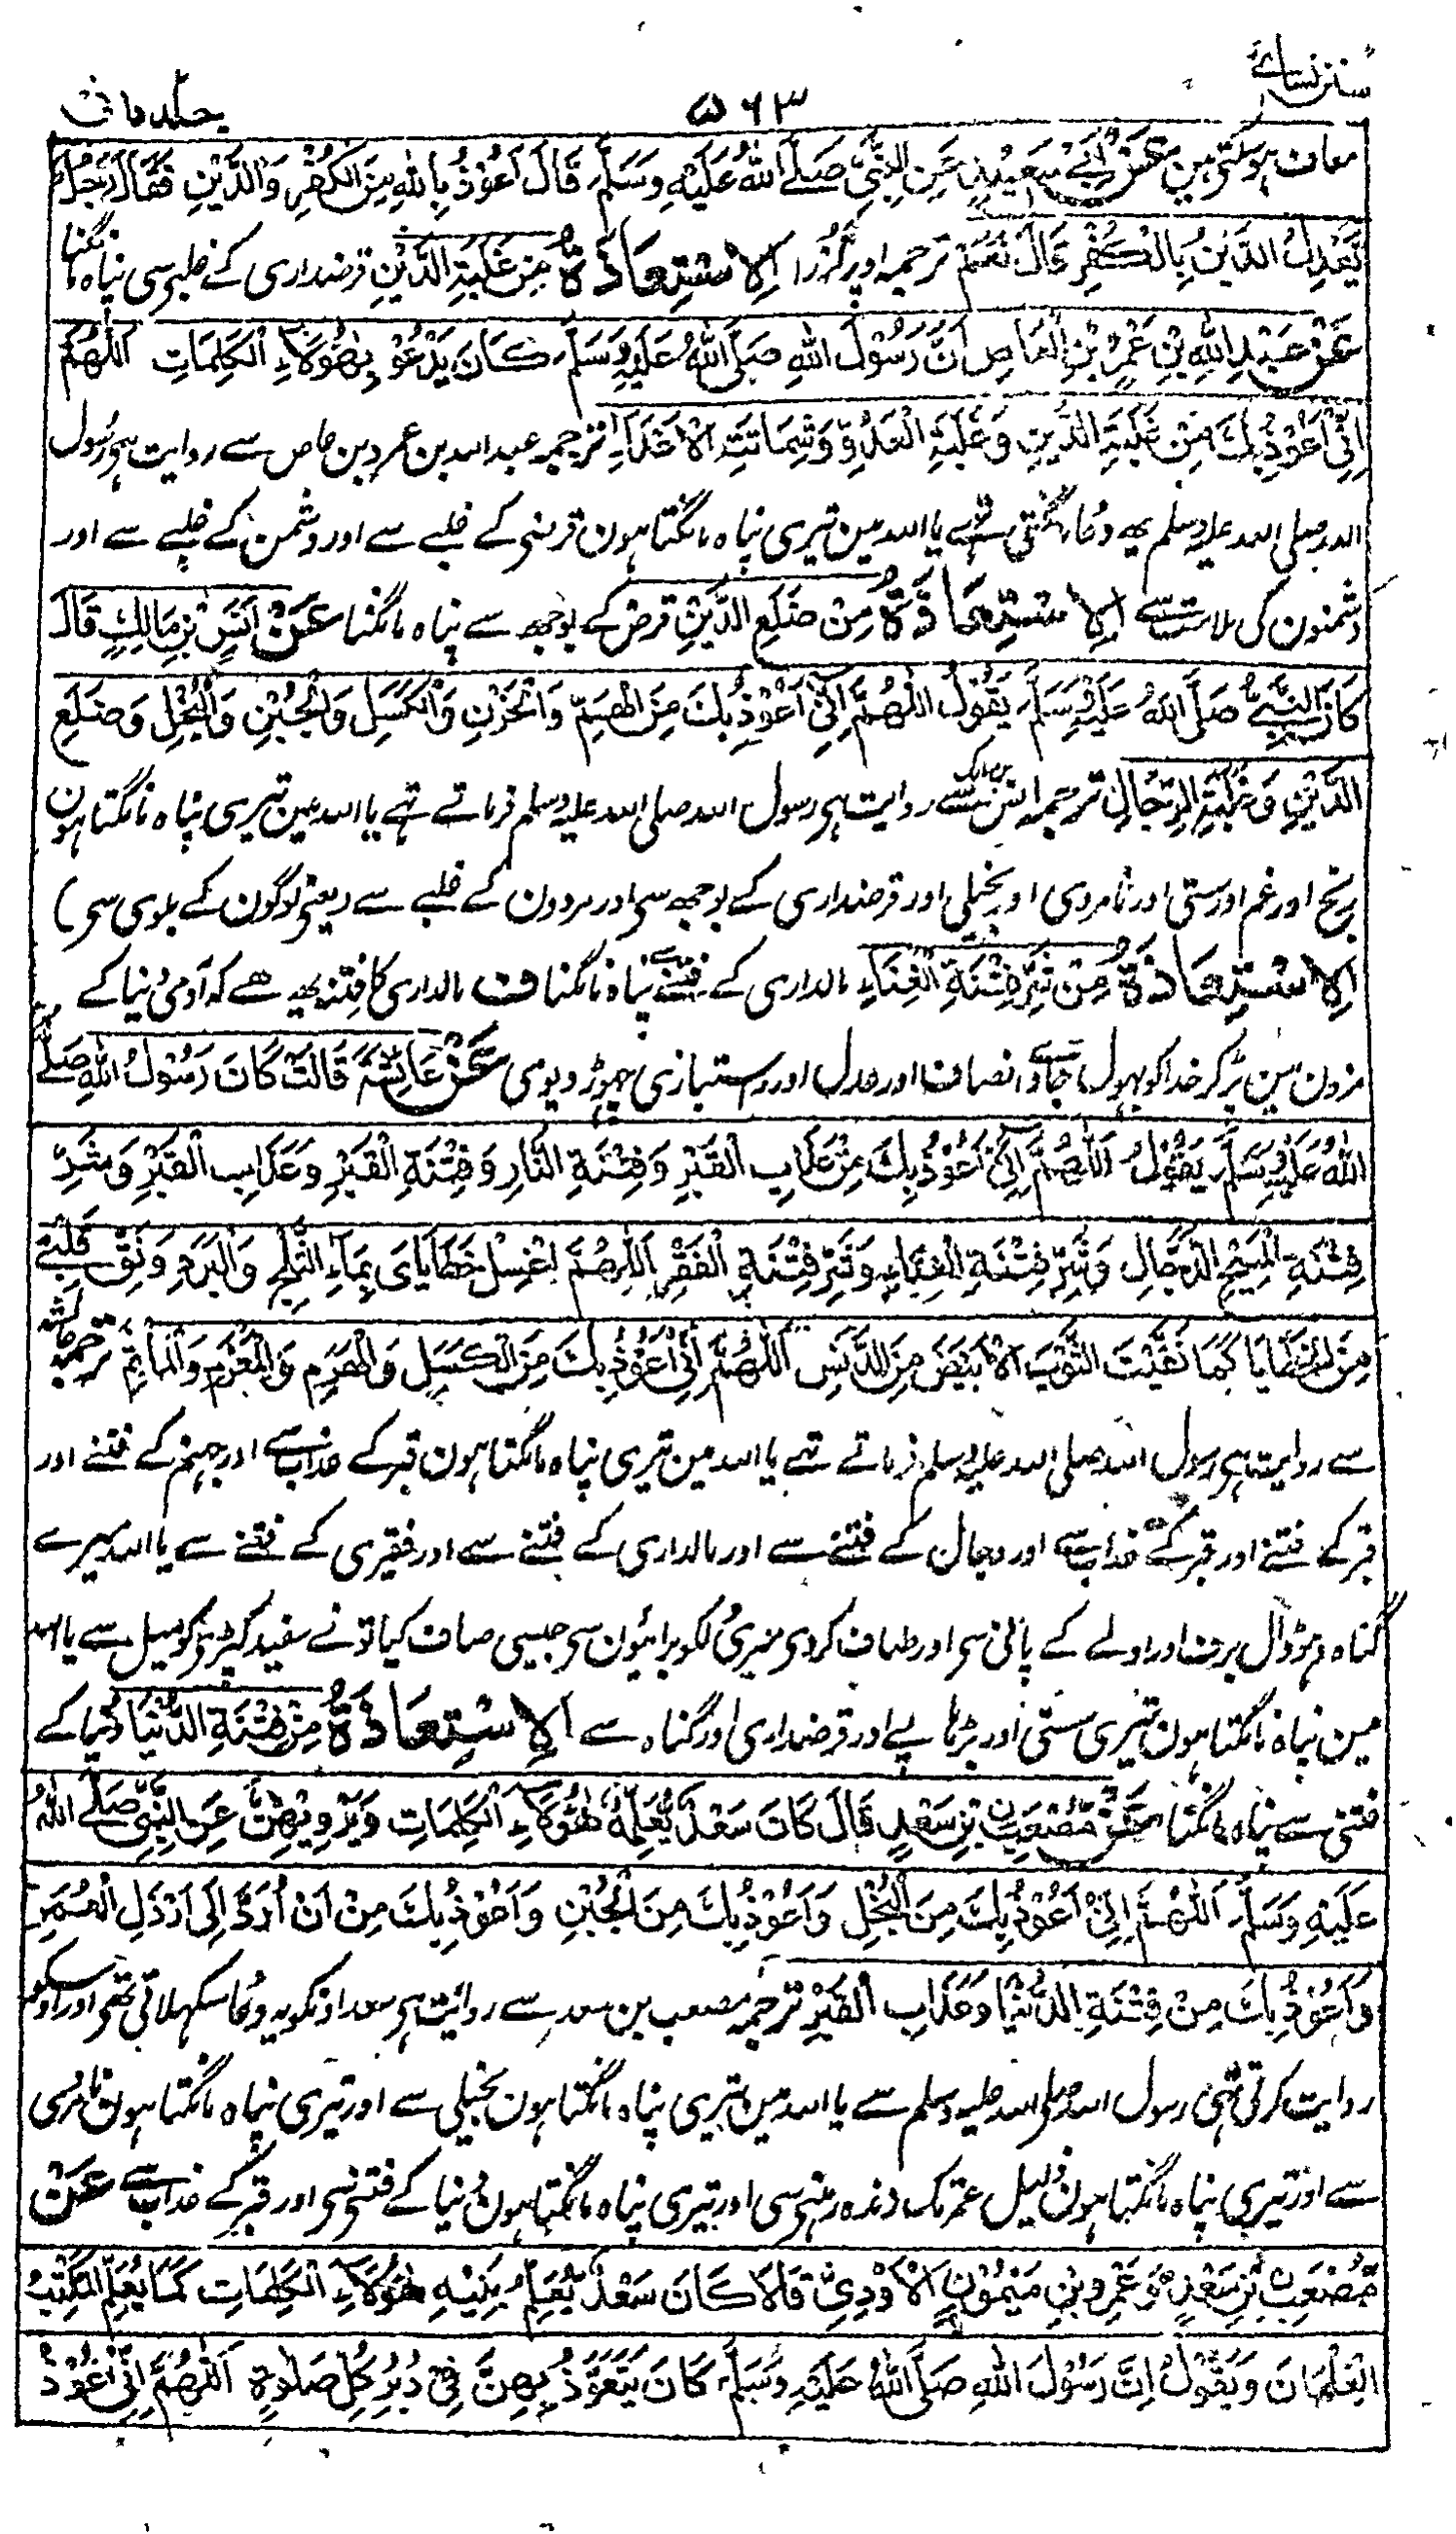 سنن نسائے
۵۶۳
جلد ثانی
معاف ہوسکتی ہین عَنْ اَبِیْ سَعِیْدٍ عَنِ النَّبِیِّ صَلَّے اللهُ عَلَیْهِ وَسَلَّمَ قَالَ اَعُوْذُ بِاللهِ مِنَ الْکُفْرِ وَالدَّیْنِ فَقَالَ رَجُلٌ
یَّعْدِلُ الدَّیْنَ بِالْکُفْرِ قَالَ نَعَمْ ترجمہ اوپر گزرا اَلْاِسْتِعَاذَةُ مِنْ غَلَبَةِ الدَّیْنِ قرضداری کے غلبے سی پناہ مانگنا
عَنْ عَبْدِ اللهِ بْنِ عَمْرِو بْنِ الْعَاصِ اَنَّ رَسُوْلَ اللهِ صَلَّی اللهُ عَلَیْهِ وَسَلَّمَ کَانَ یَدْعُوْ بِهٰؤُلَاءِ الْکَلِمَاتِ اَللّٰهُمَّ
اِنِّیْ اَعُوْذُ بِكَ مِنْ غَلَبَةِ الدَّیْنِ وَغَلَبَةِ الْعَدُوِّ وَشَمَاتَةِ الْاَعْدَآءِ ترجمہ عبد اللہ بن عمرو بن عاص سے روایت ہے رسول
اللہ صلی اللہ علیہ وسلم یہ دعا مانگتی تہے یا اللہ مین تیری پناہ مانگتا ہون قرضے کے غلبے سے اور دشمن کے غلبے سے اور
دشمنون کی ملامت سے اَلْاِسْتِعَاذَةُ مِنْ ضَلَعِ الدَّیْنِ قرض کے بوجہہ سے پناہ مانگنا عَنْ اَنَسِ بْنِ مَالِكٍ قَالَ
کَانَ النَّبِیُّ صَلَّی اللهُ عَلَیْهِ وَسَلَّمَ یَقُوْلُ اللّٰهُمَّ اِنِّیْ اَعُوْذُ بِكَ مِنَ الْهَمِّ وَالْحَزَنِ وَالْکَسَلِ وَالْجُبْنِ وَالْبُخْلِ وَضَلَعِ
الدَّیْنِ وَغَلَبَةِ الرِّجَالِ ترجمہ انس بن مالک سے روایت ہے رسول اللہ صلی اللہ علیہ وسلم فرماتے تہے یا اللہ مین تیری پناہ مانگتا ہون
رنج اور غم اور سستی اور نامردی اور بخیلی اور قرضداری کے بوجہہ سے اور مردون کے غلبے سے (یعنے لوگون کے بلوی سے)
اَلْاِسْتِعَاذَةُ مِنْ شَرِّ فِتْنَةِ الْغِنَاءِ مالداری کے فتنے سے پناہ مانگنا ف مالداری کا فتنہ یہ ہے کہ آدمی دنیا کے
مزون مین پڑ کر خدا کو بہول جاوے انصاف اور عدل اور راستبازی چھوڑ دیوی عَنْ عَائِشَةَ قَالَتْ کَانَ رَسُوْلُ اللهِ صَلَّے
اللهُ عَلَیْهِ وَسَلَّمَ یَقُوْلُ اَللّٰهُمَّ اِنِّیْ اَعُوْذُ بِكَ مِنْ عَذَابِ الْقَبْرِ وَفِتْنَةِ النَّارِ وَفِتْنَةِ الْقَبْرِ وَعَذَابِ الْقَبْرِ وَشَرِّ
فِتْنَةِ الْمَسِیْحِ الدَّجَّالِ وَشَرِّ فِتْنَةِ الْغِنَاءِ وَشَرِّ فِتْنَةِ الْفَقْرِ اَللّٰهُمَّ اغْسِلْ خَطَایَایَ بِمَآءِ الثَّلْجِ وَالْبَرَدِ وَنَقِّ قَلْبِیْ
مِنَ الْخَطَایَا کَمَا نَقَّیْتَ الثَّوْبَ الْاَبْیَضَ مِنَ الدَّنَسِ اَللّٰهُمَّ اِنِّیْ اَعُوْذُ بِكَ مِنَ الْکَسَلِ وَالْهَرَمِ وَالْمَغْرَمِ وَالْمَاْثَمِ ترجمہ عائشہ
سے روایت ہے رسول اللہ صلی اللہ علیہ وسلم فرماتے تہے یا اللہ مین تیری پناہ مانگتا ہون قبر کے عذاب سے اور جہنم کے فتنے اور
قبر کے فتنے اور قبر کے عذاب سے اور دجال کے فتنے سے اور مالداری کے فتنے سے اور فقیری کے فتنے سے یا اللہ میرے
گناہ دہو ڈال برف اور اولے کے پانی سے اور صاف کردے میری دلکو برائیون سے جیسی صاف کیا تونے سفید کپڑیکو میل سے یا اللہ
مین پناہ مانگتا ہون تیری سستی اور بڑہاپے اور قرضداری اور گناہ سے اَلْاِسْتِعَاذَةُ مِنْ فِتْنَةِ الدُّنْیَا دنیا کے
فتنی سے پناہ مانگنا عَنْ مُّصْعَبِ بْنِ سَعْدٍ قَالَ کَانَ سَعْدٌ یُّعَلِّمُهُ هٰؤُلَاءِ الْکَلِمَاتِ وَیَرْوِیْهِنَّ عَنِ النَّبِیِّ صَلَّے اللهُ
عَلَیْهِ وَسَلَّمَ اَللّٰهُمَّ اِنِّیْ اَعُوْذُ بِكَ مِنَ الْبُخْلِ وَاَعُوْذُ بِكَ مِنَ الْجُبْنِ وَاَعُوْذُ بِكَ مِنْ اَنْ اُرَدَّ اِلٰی اَرْذَلِ الْعُمُرِ
وَاَعُوْذُ بِكَ مِنْ فِتْنَةِ الدُّنْیَا وَعَذَابِ الْقَبْرِ ترجمہ مصعب بن سعد سے روایت ہے سعد اونکو یہ دعا سکہلاتی تہی اور اوسکو
روایت کرتی تہی رسول اللہ صلی اللہ علیہ وسلم سے یا اللہ مین تیری پناہ مانگتا ہون بخیلی سے اور تیری پناہ مانگتا ہون نامردی
سے اور تیری پناہ مانگتا ہون ذلیل عمر تک زندہ رہنے سی اور تیری پناہ مانگتا ہون دنیا کے فتنے سے اور قبر کے عذاب سے عَنْ
مُّصْعَبِ بْنِ سَعْدٍ وَّعَمْرِو بْنِ مَیْمُوْنٍ الْاَوْدِیِّ قَالَا کَانَ سَعْدٌ یُّعَلِّمُ بَنِیْهِ هٰؤُلَاءِ الْکَلِمَاتِ کَمَا یُعَلِّمُ الْمُکْتِبُ
الْغِلْمَانَ وَیَقُوْلُ اِنَّ رَسُوْلَ اللهِ صَلَّی اللهُ عَلَیْهِ وَسَلَّمَ کَانَ یَتَعَوَّذُ بِهِنَّ فِیْ دُبُرِ کُلِّ صَلٰوةٍ اَللّٰهُمَّ اِنِّیْ اَعُوْذُ